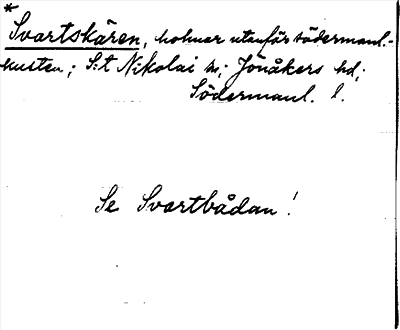 *
Svartskären, holmar utanför södermanl.-
kusten; S:t Nikolai sn; Jönåkers hd;
Södermanl. l.
Se Svartbådan!